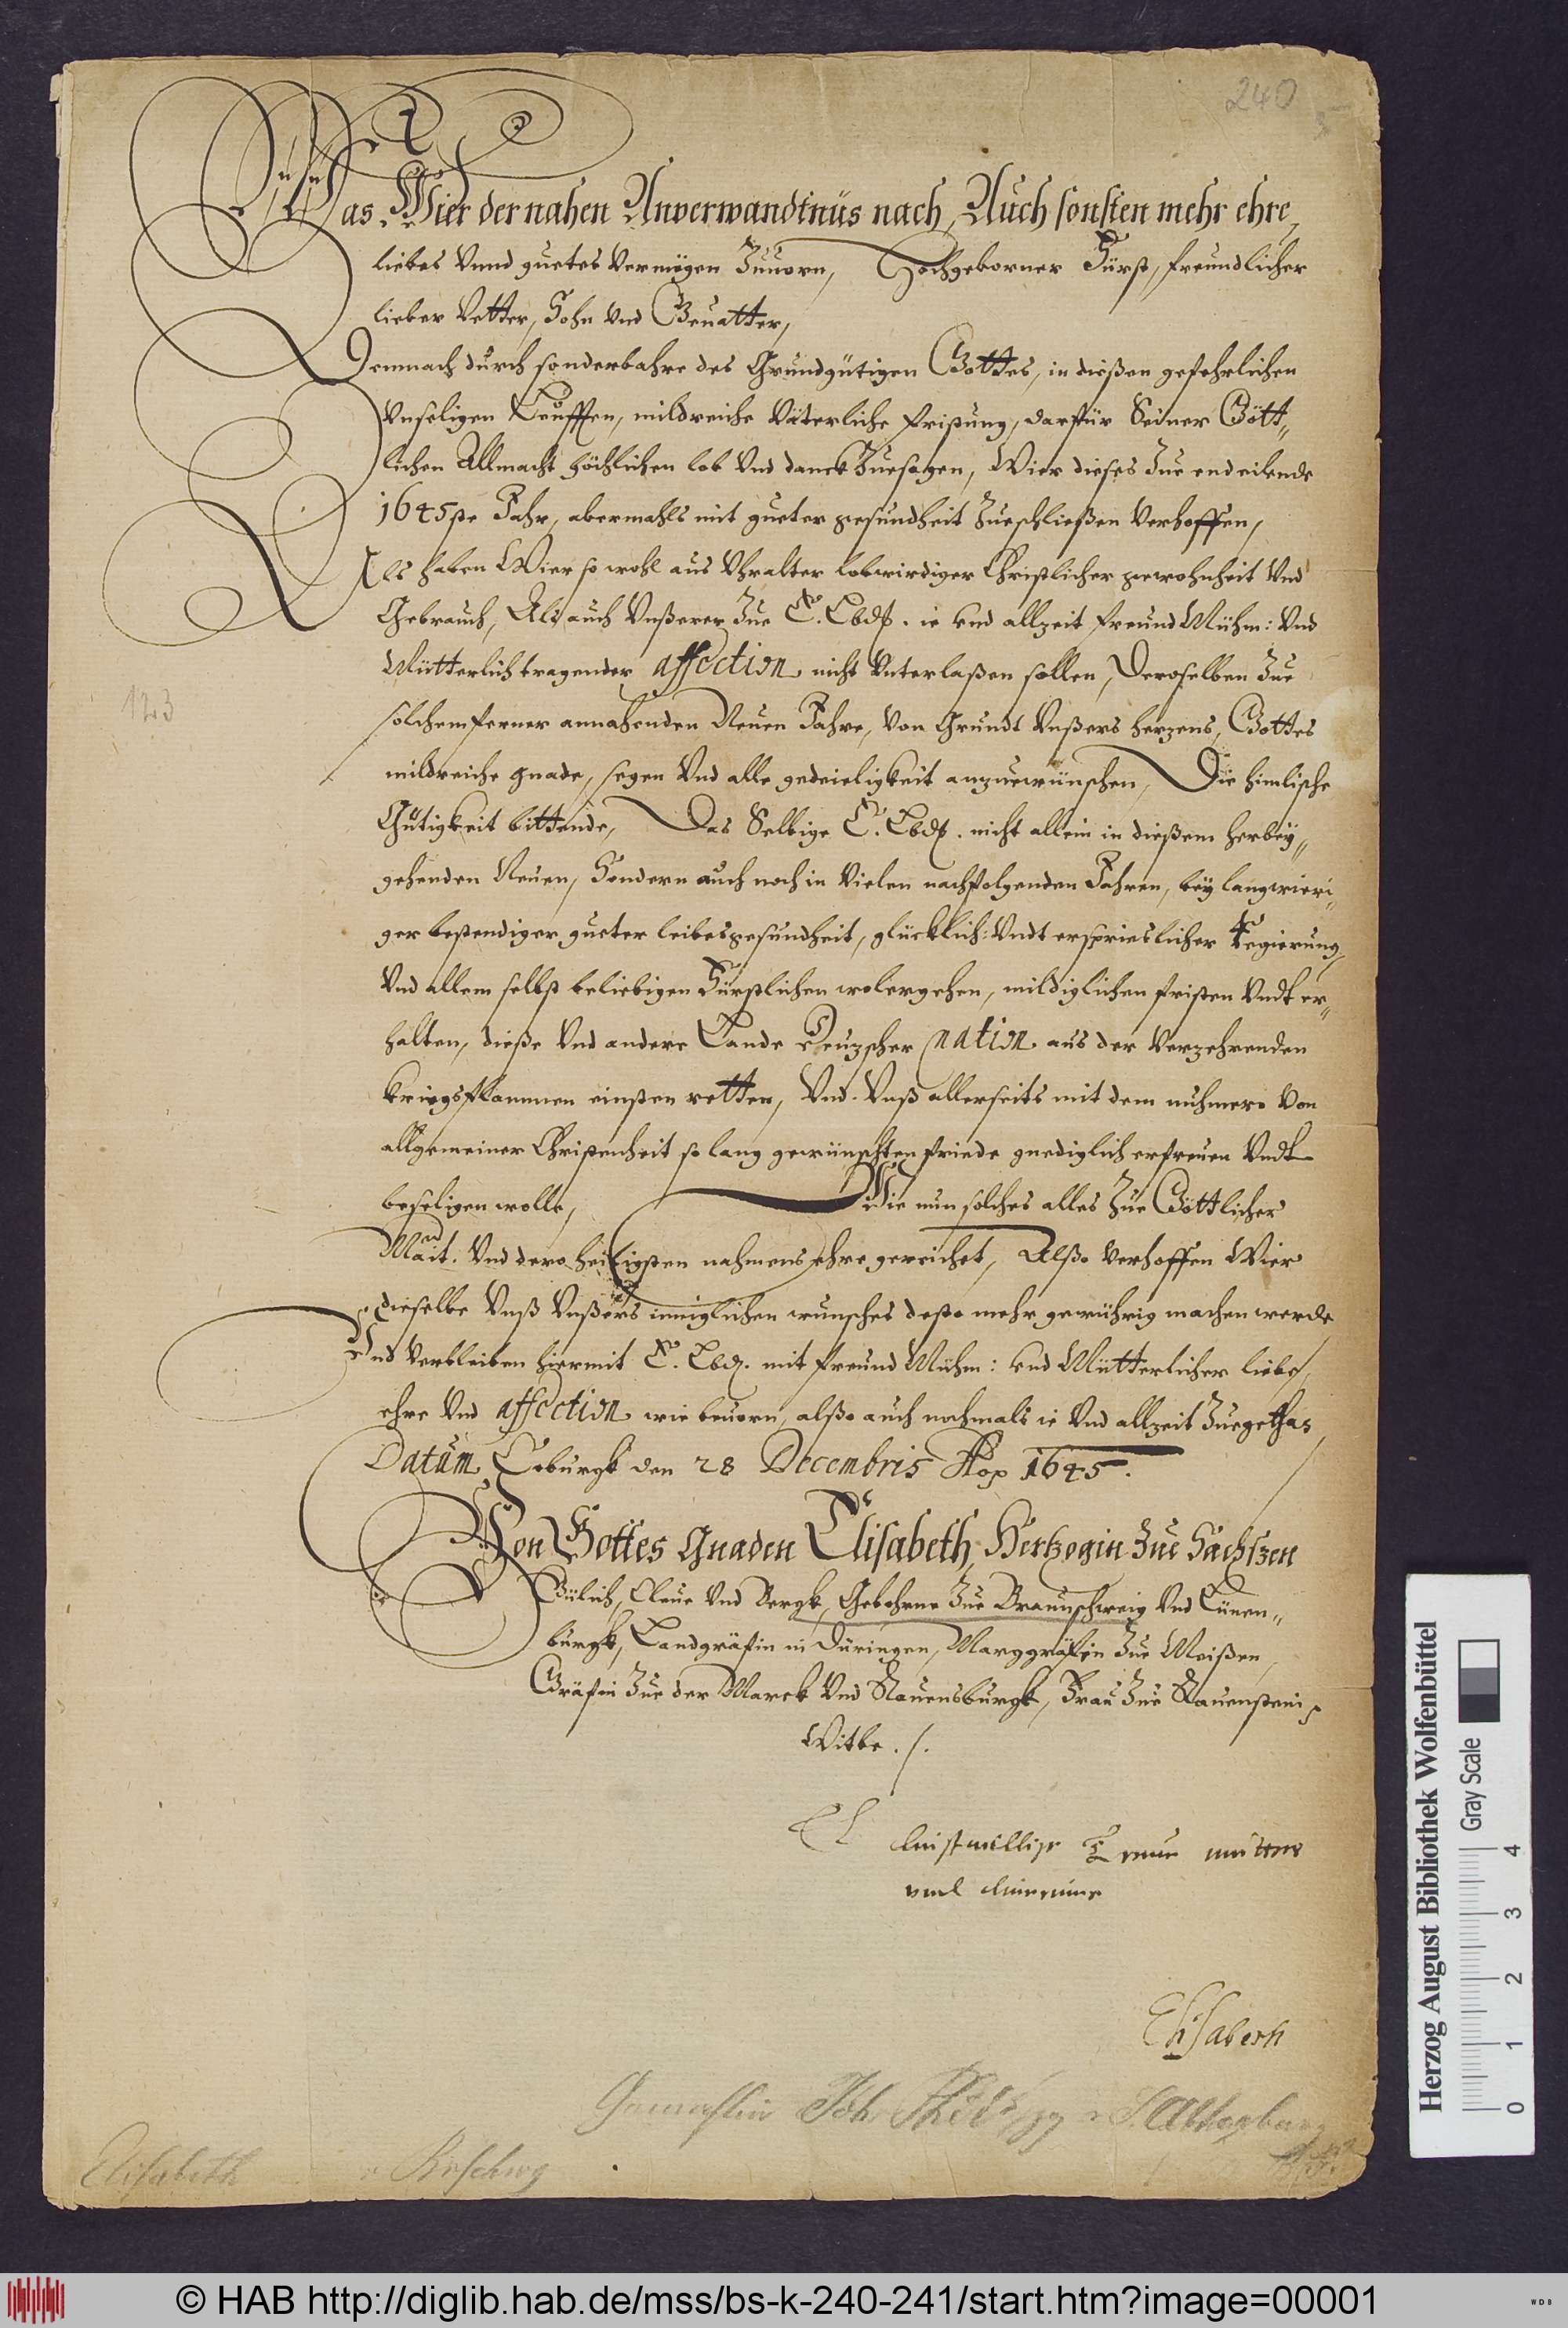 240
Was Wier der nahen Anverwandtnüs nach, Auch sonsten mehr ehre,
liebes Vnnd guetes Vermögen Zuuorn, Hochgeborner Fürst, freundlicher
lieber Vetter, Sohn Vnd Geuatter,
Demnach durch sonderbahre des Grundgütigen Gottes, in dießen gefehrlichen
Vnseligen Leufften, mildreiche Väterliche fristung, darfür Seiner Gött„
lichen Allmacht höchlichen lob Vnd danck Zuesagen, Wier dieses Zue end eilende
1645ste Jahr, abermahls mit gueter gesundheit Zueschließen Verhoffen,
Als haben Wier so wohl aus Vhralter lobwirdiger Christlicher gewohnheit Vnd
Gebrauch, Als auch Vnßerer Zue E. Lbd. ie vnd allzeit freund Mühm: Vnd
Mütterlich tragender affection nicht Vnterlaßen sollen, Deroselben Zue
solchem ferner annahenden Neuen Jahre, Von Grundt Vnßers herzens, Gottes
123
mildreiche gnade, segen Vnd alle gedeieligkeit anzuewünschen, Die himlische
Gütigkeit bittende, Das Selbige E. Lbd. nicht allein in dießem herbey„
gehenden Neuen, Sondern auch noch in Vielen nachfolgenden Jahren, bey langwieri„
ger bestendiger gueter leibesgesundheit, glücklich: Vndt erspriesslicher Regierung,
Vnd allem selbst beliebigen Fürstlichen wolergehen, mildiglichen fristen Vndt er„
halten, dieße Vnd andere Lande Deuzscher nation aus der Verzehrenden
kriegsflammen einsten retten, Vnd Vnß allerseits mit dem nuhmero Von
allgemeiner Christenheit so lang gewünschten friede gnediglich erfreuen Vndt
beseligen wolle, Wie nun solches alles Zue Göttlicher
Mait. Vnd dero heiligsten nahmens ehre gereichet, Alßo Verhoffen Wier
dieselbe Vnß Vnßers inniglichen wunsches desto mehr gewührig machen werde
Vnd Verbleiben hiermit E. Lbd. mit freund Mühm: vnd Mütterlicher liebe,
ehre Vnd affection wie beuorn, alßo auch nochmals ie Vnd allzeit Zuegethan
Datum Coburgk den 28 Decembris Aõ 1645.
Von Gottes Gnaden Elisabeth, Hertzogin Zue Sachszen
Gülich, Cleue Vnd Bergk, Gebohrne Zue Braunschweig Vnd Lünen„
burgk, Landgräfin in Düringen, Marggräfin Zue Meißen,
Gräfin Zue der Marck Vnd Rauensburgk, Frau Zue Rauenstein
Witbe ./.
El dinstwillige mutter
vnd
Elisabeth
Gemahlin Joh. Phil. v. S. Altenburg
Elisabeth v. Brschwg
Herzog August Bibliothek Wolfenbüttel
Gray Scale
0 1 2 3 4
© HAB http://diglib.hab.de/mss/bs-k-240-241/start.htm?image=00001
WDB